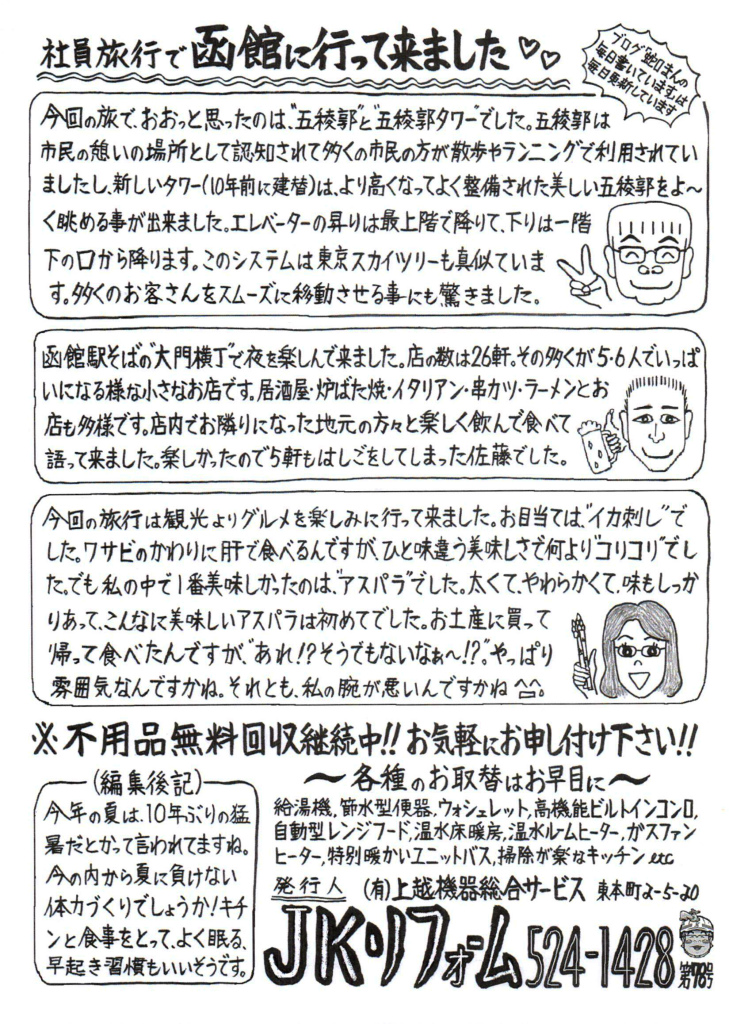 社員旅行で函館に行って来ました♡♡
ブログ「蛇口まんの
毎日書いています」は
毎日更新しています
今回の旅で、おおっと思ったのは、“五稜郭”と“五稜郭タワー”でした。五稜郭は
市民の憩いの場所として認知されて多くの市民の方が散歩やランニングで利用されてい
ましたし、新しいタワー(10年前に建替)は、より高くなってよく整備された美しい五稜郭をよ〜
く眺める事が出来ました。エレベーターの昇りは最上階で降りて、下りは一階
下の口から降ります。このシステムは東京スカイツリーも真似していま
す。多くのお客さんをスムーズに移動させる事にも驚きました。
函館駅そばの“大門横丁”で夜を楽しんで来ました。店の数は26軒。その多くが5・6人でいっぱ
いになる様な小さなお店です。居酒屋・炉ばた焼・イタリアン・串カツ・ラーメンとお
店も多様です。店内でお隣りになった地元の方々と楽しく飲んで食べて
語って来ました。楽しかったので5軒もはしごをしてしまった佐藤でした。
今回の旅行は観光よりグルメを楽しみに行って来ました。お目当ては、“イカ刺し”で
した。ワサビのかわりに肝で食べるんですが、ひと味違う美味しさで何より“コリコリ”でし
た。でも私の中で1番美味しかったのは、“アスパラ”でした。太くて、やわらかくて、味もしっか
りあって、こんなに美味しいアスパラは初めてでした。お土産に買って
帰って食べたんですが、“あれ!?そうでもないなぁ〜!?”。やっぱり
雰囲気なんですかね。それとも、私の腕が悪いんですかね^^;。
※不用品無料回収継続中!!お気軽にお申し付け下さい!!
(編集後記)
今年の夏は、10年ぶりの猛
暑だとかって言われてますね。
今の内から夏に負けない
体力づくりでしょうか!キチ
ンと食事をとって、よく眠る、
早起き習慣もいいそうです。
〜各種のお取替はお早目に〜
給湯機,節水型便器,ウォシュレット,高機能ビルトインコンロ,
自動型レンジフード,温水床暖房,温水ルームヒーター,ガスファン
ヒーター,特別暖かいユニットバス,掃除が楽なキッチン etc
発行人 (有)上越機器総合サービス 東本町2-5-20
JKリフォーム 524-1428 第78号